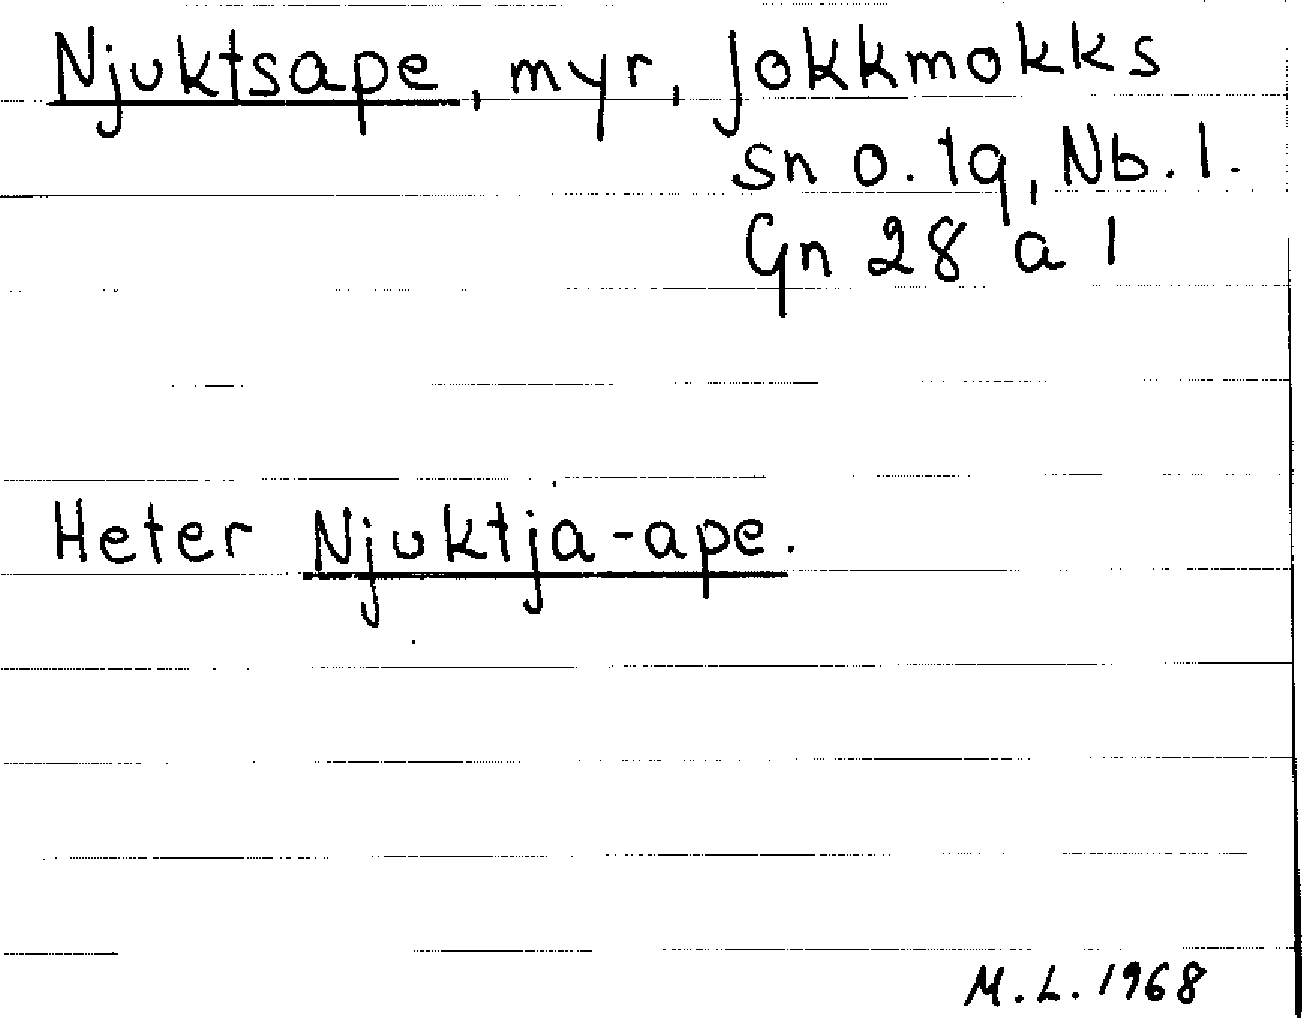 Njuktsape, myr, Jokkmokks
sn o. tg, Nb. l.
Gn 28 a 1
Heter Njuktja-ape.
M.L. 1968